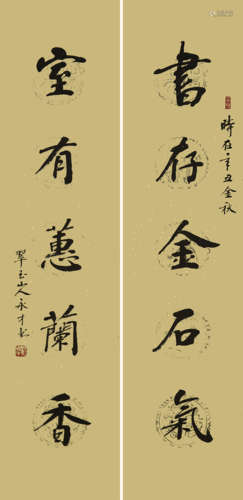 書存金石氣
時在辛丑金秋
室有蕙蘭香
翠玉山人永才書